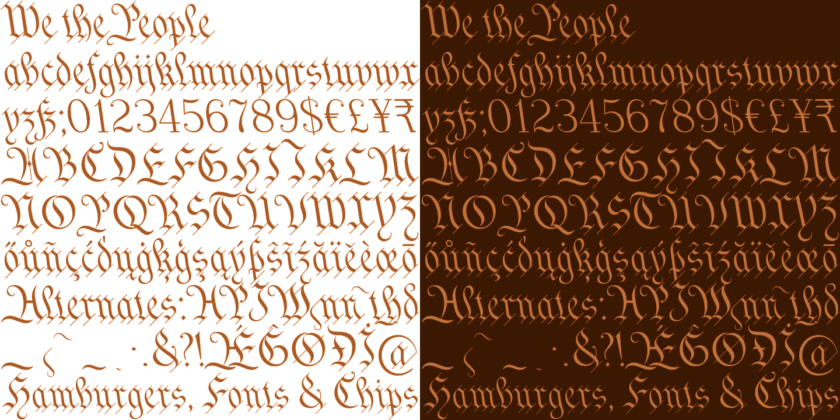 We the People
abcdefghijklmnopqrstuvwx
yzß;0123456789$€£¥₹
ABCDEFGHIJKLM
NOPQRSTUVWXYZ
Alternates: H P J W n n th d
&?!
Hamburgers, Fonts & Chips
We the People
abcdefghijklmnopqrstuvwx
yzß;0123456789$€£¥₹
ABCDEFGHIJKLM
NOPQRSTUVWXYZ
Alternates: H P J W n n th d
&?!
Hamburgers, Fonts & Chips